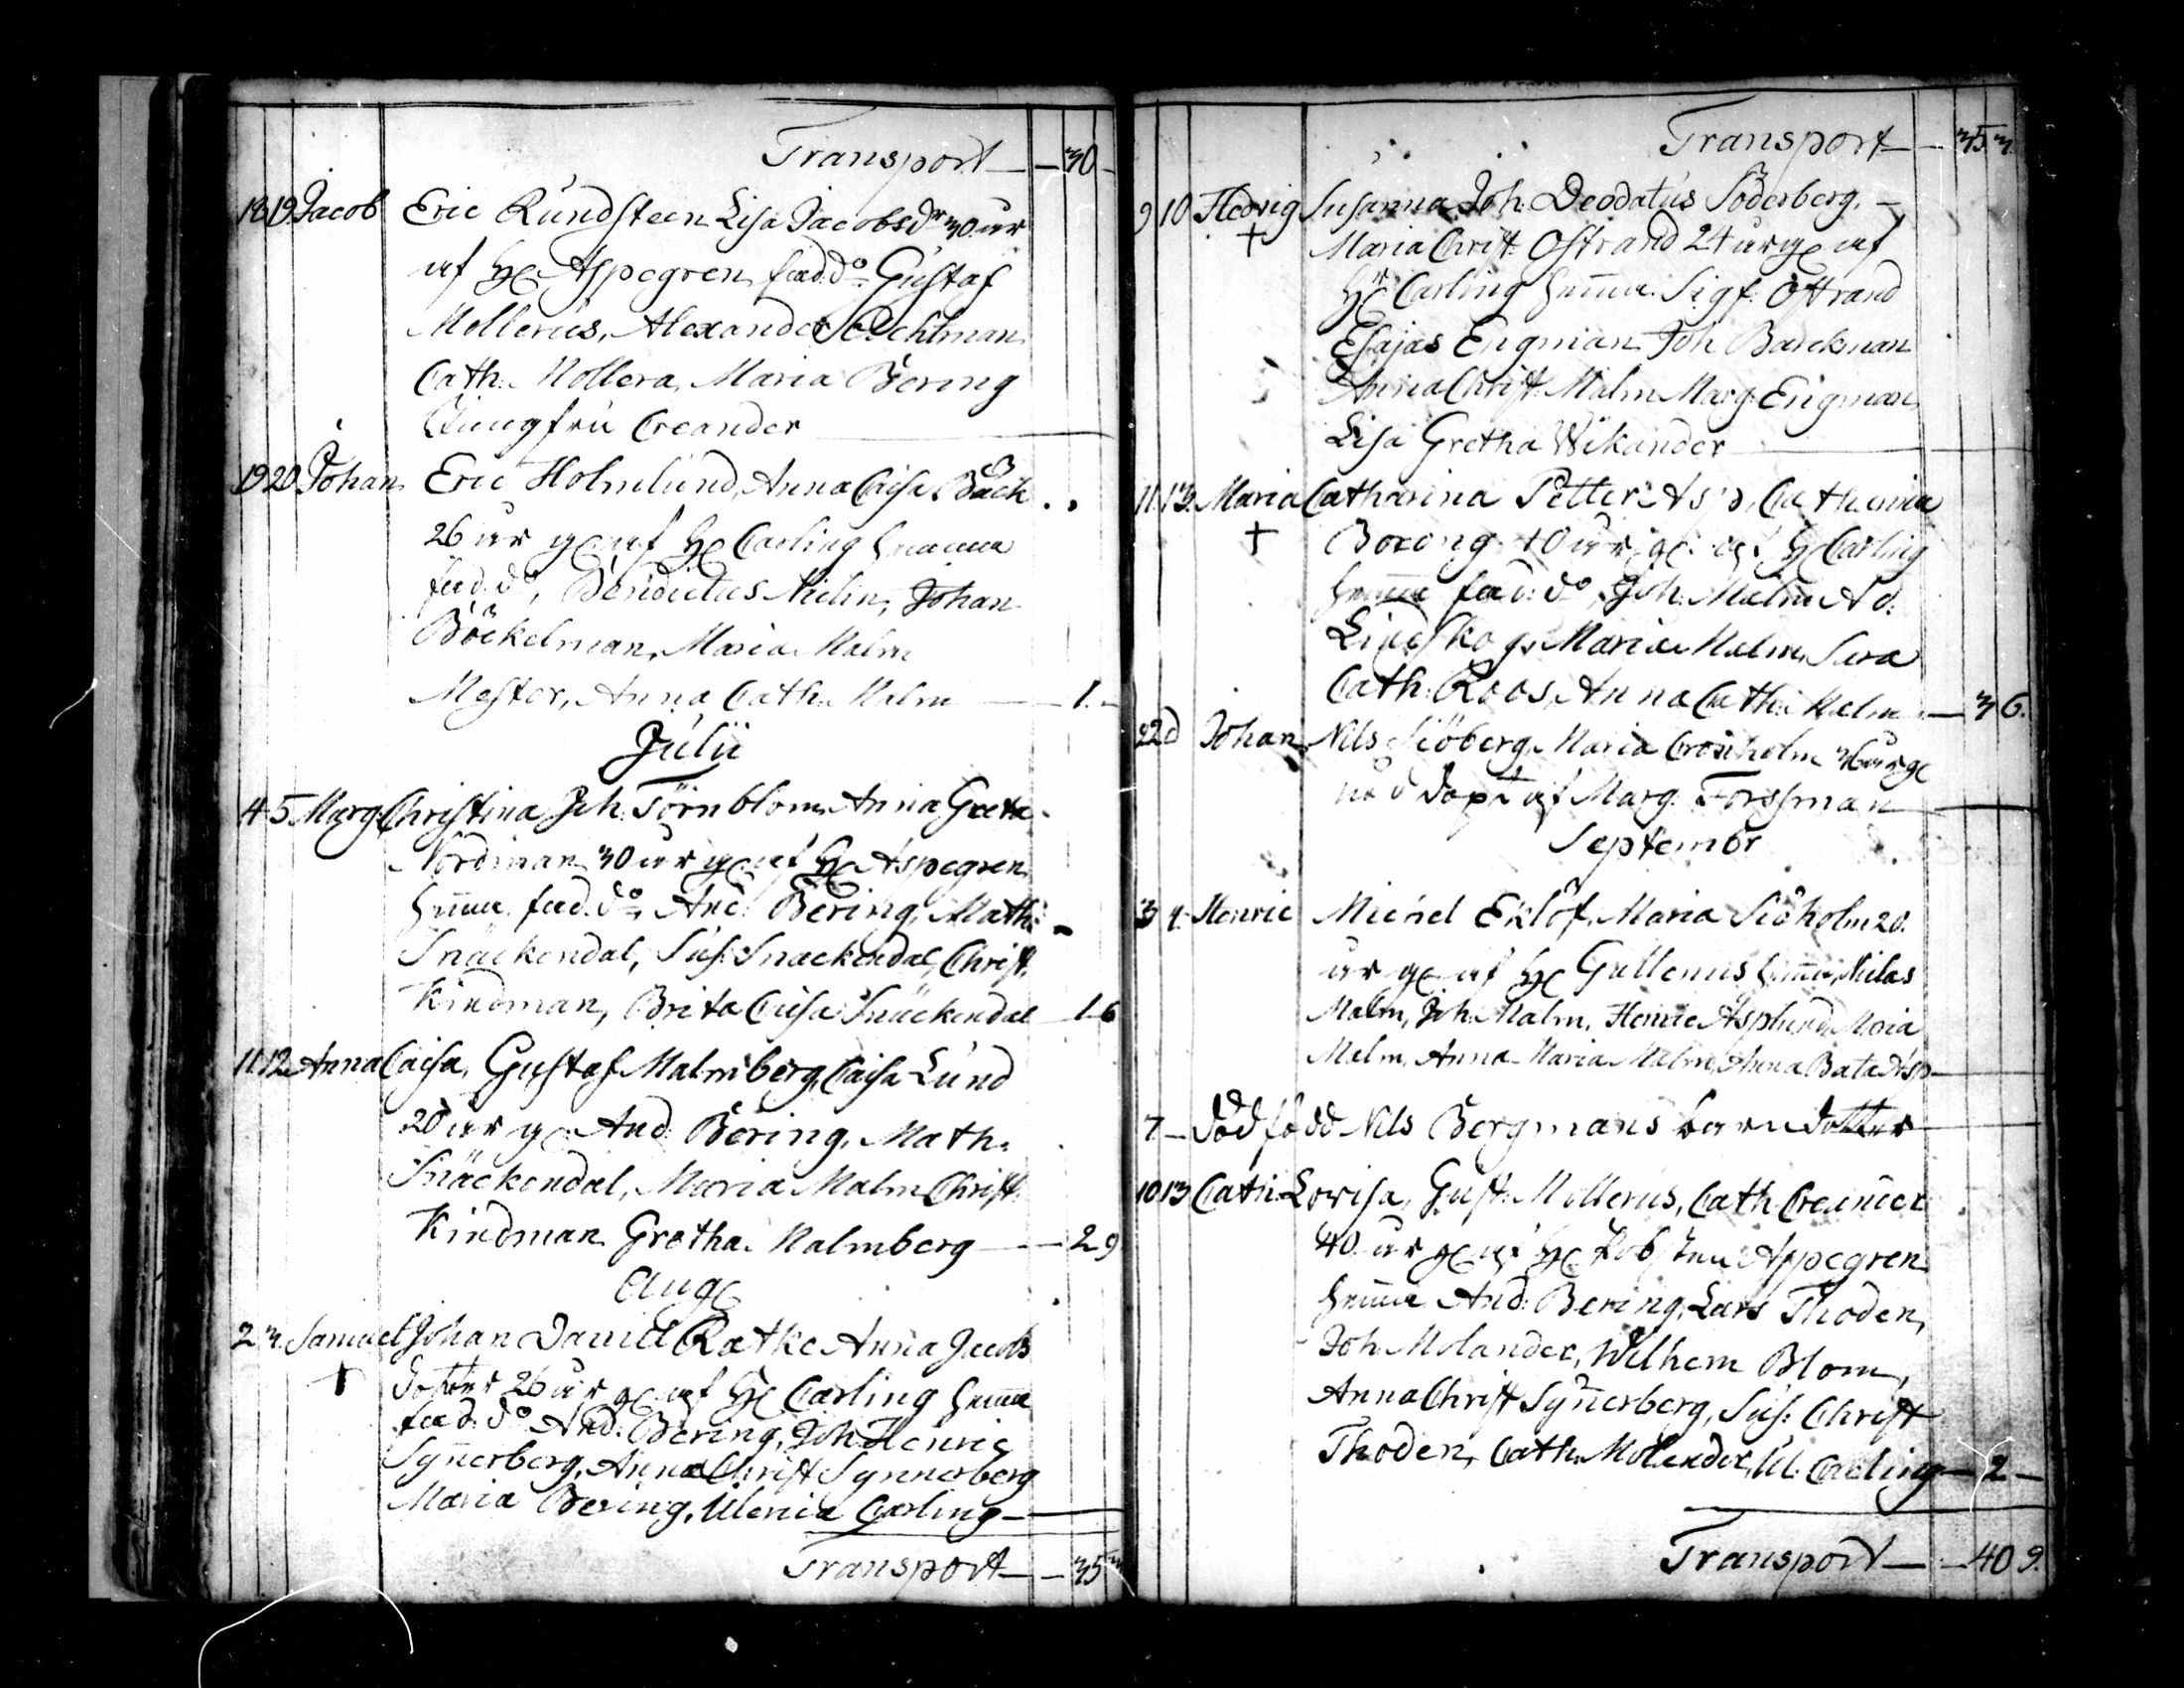 Transport — — 30 —
18 19 Jacob Eric Rundsteen Lisa Jacobsdr 30 år
af H Aspegren fad. do Gustaf
Mollerus, Alexander
Cath. Mollera, Maria Bering
Jungfru Creander
19 20 Johan Eric Holmlund, Anna Caisa Bäck
26 år g af H Carling hemma
fad. do, Benedictus Melin, Johan
Böckelman, Maria Malm
Anna Cath. Malm — 1. —
Julii
4 5 Marg. Christina Joh. Törnblom Anna Greta
Nordman 30 år g af H Aspegren
hemma fad. do And. Bering, Math.
Snäckendal, Sus. Snäckendal, Christ.
Kindman, Brita Caisa Snäckendal 1 6
11 12 Anna Caisa, Gustaf Malmberg, Caisa Lund
20 år g And. Bering, Math.
Snäckendal, Maria Malm Christ.
Kindman Gretha Malmberg — 2 9
Aug
2 3. Samuel Johan David Ratke Anna Jacobs
† dotter 26 år g af H Carling hemma
fad. do And. Bering, Joh. Henric
Synnerberg, Anna Christ Synnerberg
Maria Bering, Ulrica Carling —
Transport — — 35 3
Transport — — 35 3.
9 10 Hedvig Susanna Joh. Deodatus Söderberg. —
† Maria Christ. Ostrand 24 år g af
Hr Carling hemma. Sigf. Ostrand
Esajas Engman Joh. Barckman
Anna Christ. Malm Marg. Engman
Lisa Gretha Wikander
11 13. Maria Catharina Petter Asp, Catharina
† 40 år g. af H Carling
hemma fad. do, Joh. Malm Ad.
Lindskog, Maria Malm, Sara
Cath. Roos, Anna Cath. Malm — 3 6.
22 d Johan Nils Siöberg, Maria Cronholm 36 år g
nöd döpt af Marg. Forssman
Septembr
3 4. Henric Michel Eklöf, Maria Siöholm 20.
år g af H Gallenius hemma, Niclas
Malm, Joh. Malm, Henric Asplund Maria
Malm, Anna Maria Malm, Anna Beata Asp
7 — dödfödd Nils Bergmans barn dotter
10 13 Cath. Lovisa, Gust. Mollerus, Cath Creander
40. år g af H Aspegren
hemma And. Bering, Lars Thoden,
Joh. Molander, Wilhem Blom,
Anna Christ Synnerberg, Sus. Christ
Thoden, Cath. Molander, Ul. Carling — 2 —
Transport — — 40 9.